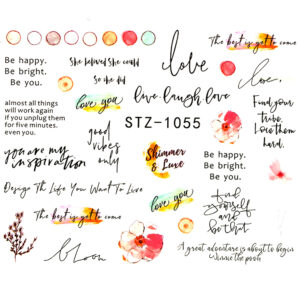 The best is yet to come
Be happy.
Be bright.
Be you.
She believed she could
so she did
love
love.
almost all things
will work again
if you unplug them
for five minutes.
even you.
love you
live laugh love
Find your
tribe.
Love them
hard.
STZ-1055
good
vibes
only
you are my
inspiration
Shimmer
& Luxe
Be happy.
Be bright.
Be you.
Design The Life You Want To Live
love you
find
yourself
and
be that
The best is yet to come
bloom
A great adventure is about to begin
Winnie the pooh